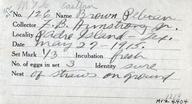 No. 126 Name Brown Pelican
Collector F. B. Armstrong Jr.
Locality Padre Island - Tex.
Date May 27-1915.
Set Mark 1/3 Incubation Fresh
No. of eggs in set 3 Identity sure
Nest of straws on ground